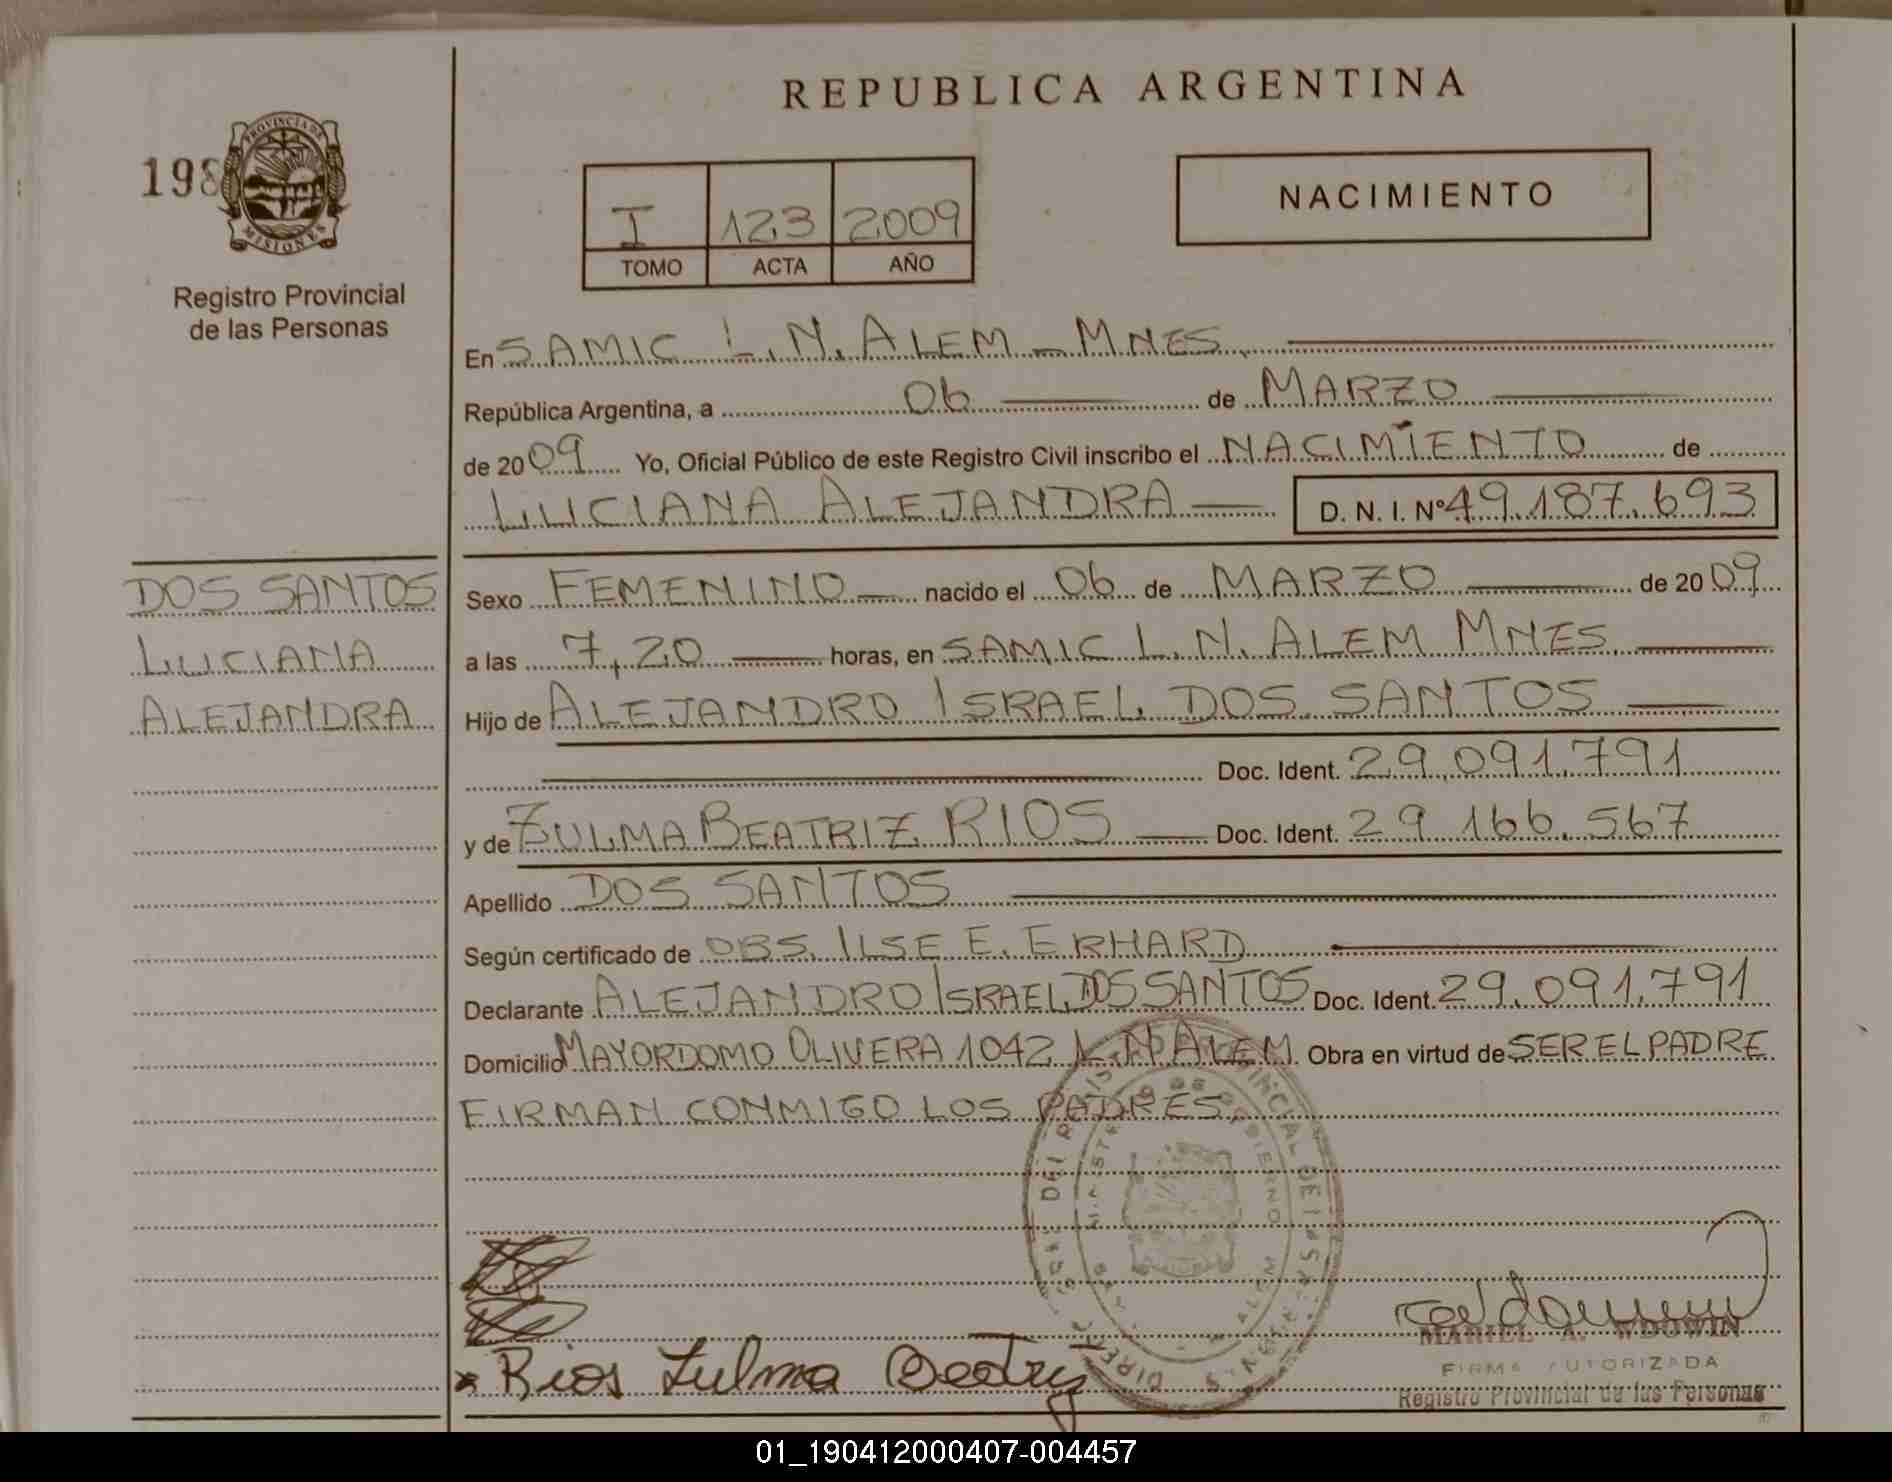 REPUBLICA ARGENTINA
198
PROVINCIA DE
MISIONES
Registro Provincial
de las Personas
I 123 2009
TOMO ACTA AÑO
NACIMIENTO
En SAMIC L.N. ALEM - MNES
República Argentina, a 06 de MARZO
de 2009 Yo, Oficial Público de este Registro Civil inscribo el NACIMIENTO de
LUCIANA ALEJANDRA D. N. I. Nº 49.187.693
DOS SANTOS
LUCIANA
ALEJANDRA
Sexo FEMENINO nacido el 06 de MARZO de 2009
a las 7,20 horas, en SAMIC L. N. ALEM MNES
Hijo de ALEJANDRO ISRAEL DOS SANTOS
Doc. Ident. 29.091.791
y de ZULMA BEATRIZ RIOS Doc. Ident. 29 166.567
Apellido DOS SANTOS
Según certificado de OBS. ILSE E. ERHARD
Declarante ALEJANDRO ISRAEL DOS SANTOS Doc. Ident. 29.091.791
Domicilio MAYORDOMO OLIVERA 1042 L.N ALEM Obra en virtud de SER EL PADRE
FIRMAN CONMIGO LOS PADRES
x Rios Zulma Beatriz
MARIEL A. WDOWIN
FIRMA AUTORIZADA
Registro Provincial de las Personas
01_190412000407-004457